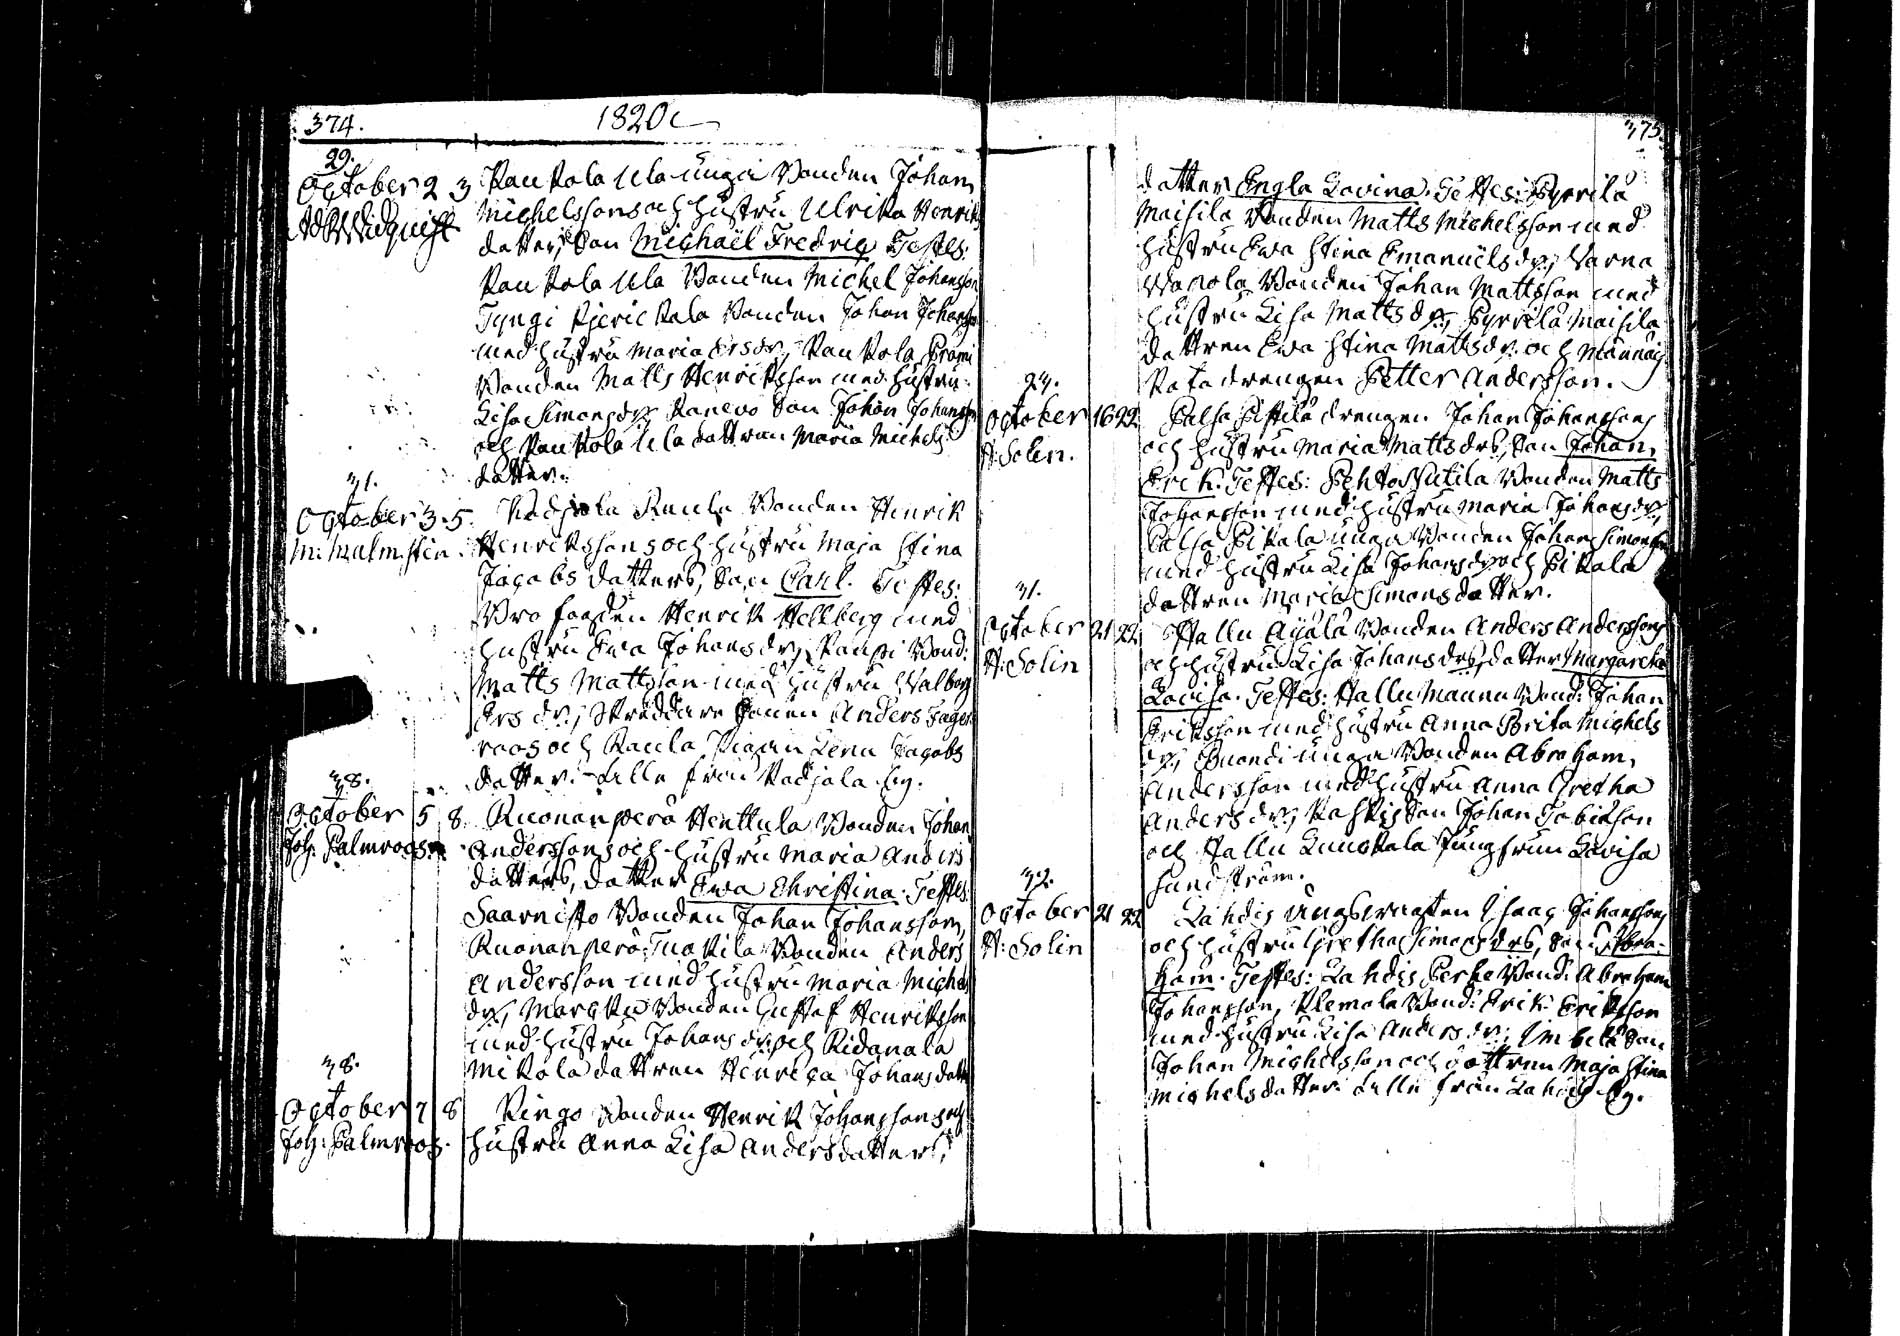 374.
1820
29.
October 2 3 Kaukola Ulatunga Bonden Johan
Ad Widquist Michelssons och hustru Ulrika Henriks
datters, Son Michaël Fredric Testes:
Kaukola Ula Bonden Michel Johansson
Tyngi Kierickala Bonden Johan Johansson
med hustru Maria Ersdr, Kaukola Prami
Bonden Matts Henriksson med hustru
Lisa Simonsdr, Kanevo Son Johan Johansson
och Kaukola Ula dattren Maria Michels
datter.
31.
October 3. 5. Kadjala Raula Bonden Henrik
M: Malmsten. Henrikssons och hustru Maja Stina
Jacobs datters, Son Carl. Testes:
Bro fogden Henrik Hellberg med
hustru Ewa Johansdr, Bond:
Matts Mattsson med hustru Walborg
Ers dr, Skreddare Sonen Anders Fager
roos och Raula Pigan Lena Jacobs
datter. Alle från Kadjala by.
38.
October 5 8. Kuonanperä Henttula Bonden Johan
Joh: Palmroos. Anderssons och hustru Maria Anders
datters, datter Ewa Christina. Testes:
Saarnisto Bonden Johan Johansson,
Kuonanperä Tuokila Bonden Anders
Andersson med hustru Maria Michels
dr, Bonden Gustaf Henriksson
med hustru Johansdr och Ridanala
Mikola dattren Henrica Johansdatter
38.
October 7 8 Ringo Bonden Henrik Johanssons och
Joh: Palmroos. hustru Anna Lisa Andersdatters,
375.
datter Engla Lovisa. Testes: Pyrrilä
Maisila Bonden Matts Michelsson med
hustru Ewa Stina Emanuelsdr, Varna
Bonden Johan Mattsson med
hustru Lisa Mattsdr, Pyrrilä Maisila
dattren Ewa Stina Mattsdr och
drengen Petter Andersson.
27.
October 16 22 Palsa Pistilä drengen Johan Johanssons
H: Solin. och hustru Maria Mattsdrs, Son Johan
Erik. Testes: Pehto Nutila Bonden Matts
Johansson med hustru Maria Johansdr,
Palsa Pikala unga Bonden Johan Simonsson
med hustru Lisa Johansdr och Pikala
dattren Maria Simonsdatter.
31.
October 21 22 Hallu Äijälä Bonden Anders Anderssons
H: Solin och hustru Lisa Johansdrs, datter Margaretha
Lovisa. Testes: Hallu Maunu Bond: Johan
Eriksson med hustru Anna Brita Michels
dr, unga Bonden Abraham
Andersson med hustru Anna Gretha
Anders dr, Son Johan Tobiason
och Hallu Kunokala Jungfrun Lovisa
Sundström.
32.
October 21 22 Lahdis Ungsvensten Isaac Johanssons
H: Solin och hustru Gretha Simonsdrs, Son Abra-
ham. Testes: Lahdis Perhe Bond: Abraham
Johansson, Klemola Bond: Erik Eriksson
med hustru Lisa Anders dr, Imbilä Son
Johan Michelsson och dottren Maja Stina
Michelsdatter. Alle från Lahdis by.